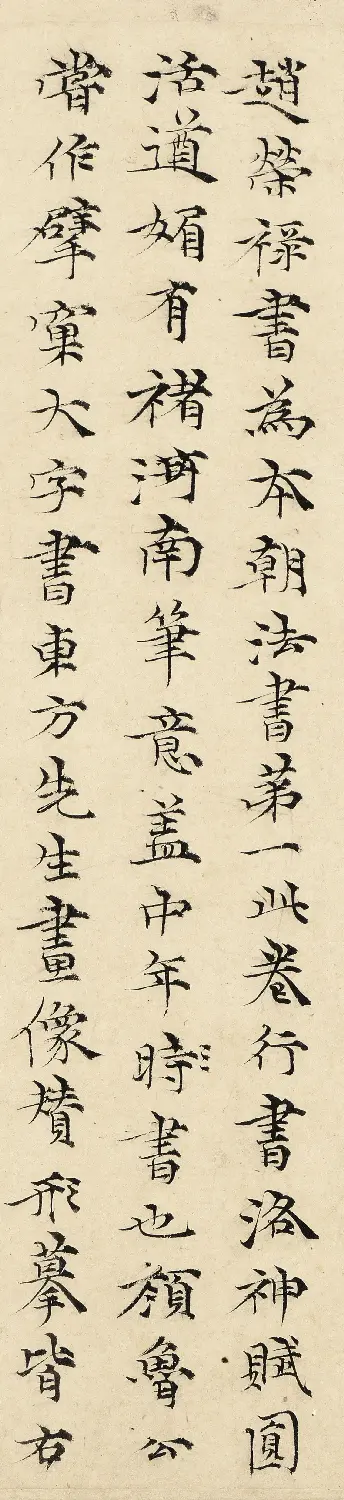 趙榮祿書為本朝法書苐一此卷行書洛神賦圓
活遒媚有褚河南筆意盖中年時書也顏魯公
嘗作擘窠大字書東方先生畫像賛形摹皆右